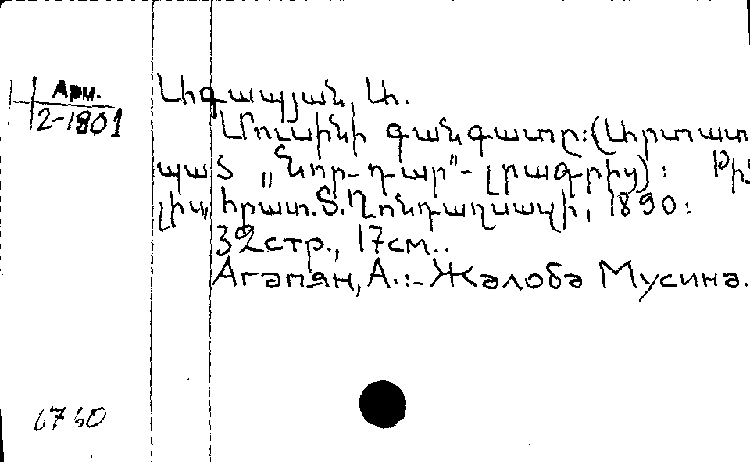 Арм.
2-1801
Աղայան, Ա.
Մուսինի գանգատը: (Արտատ
պած „Նոր-դար"-լրագրից): Թիֆ
լիս, հրատ. Տ. Ղունկիանոսի, 1890:
32стр., 17см..
Агапян, А.:- Жалоба Мусина.
6760